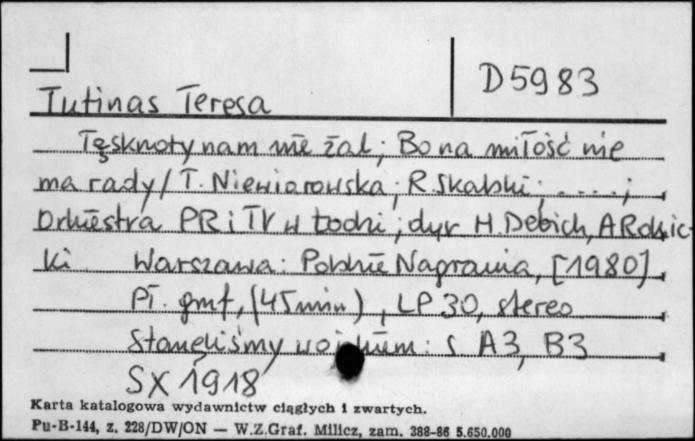 D5983
Tutinas Teresa
Tęsknoty nam nie żal; Bo na miłość nie
ma rady / T. Niewiarowska; R. Skalski; ....;
Orkiestra PR i TV w Łodzi; dyr H. Debich, A Rokic-
ki Warszawa: Polskie Nagrania, [1980]
Pł. gmf, (45 min), LP 30, stereo
Stanęliśmy : s A3, B3
SX 1918
Karta katalogowa wydawnictw ciągłych i zwartych.
Pu-B-144, z. 228/DW/ON — W.Z.Graf. Milicz, zam. 388-86 5.650.000